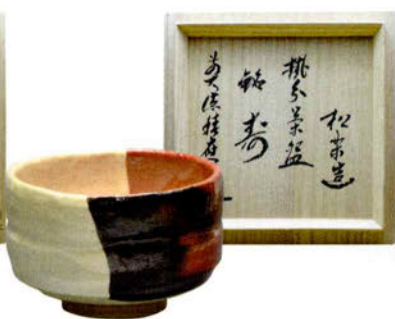 松楽造
掛分茶盌
銘 寿
前大徳積應